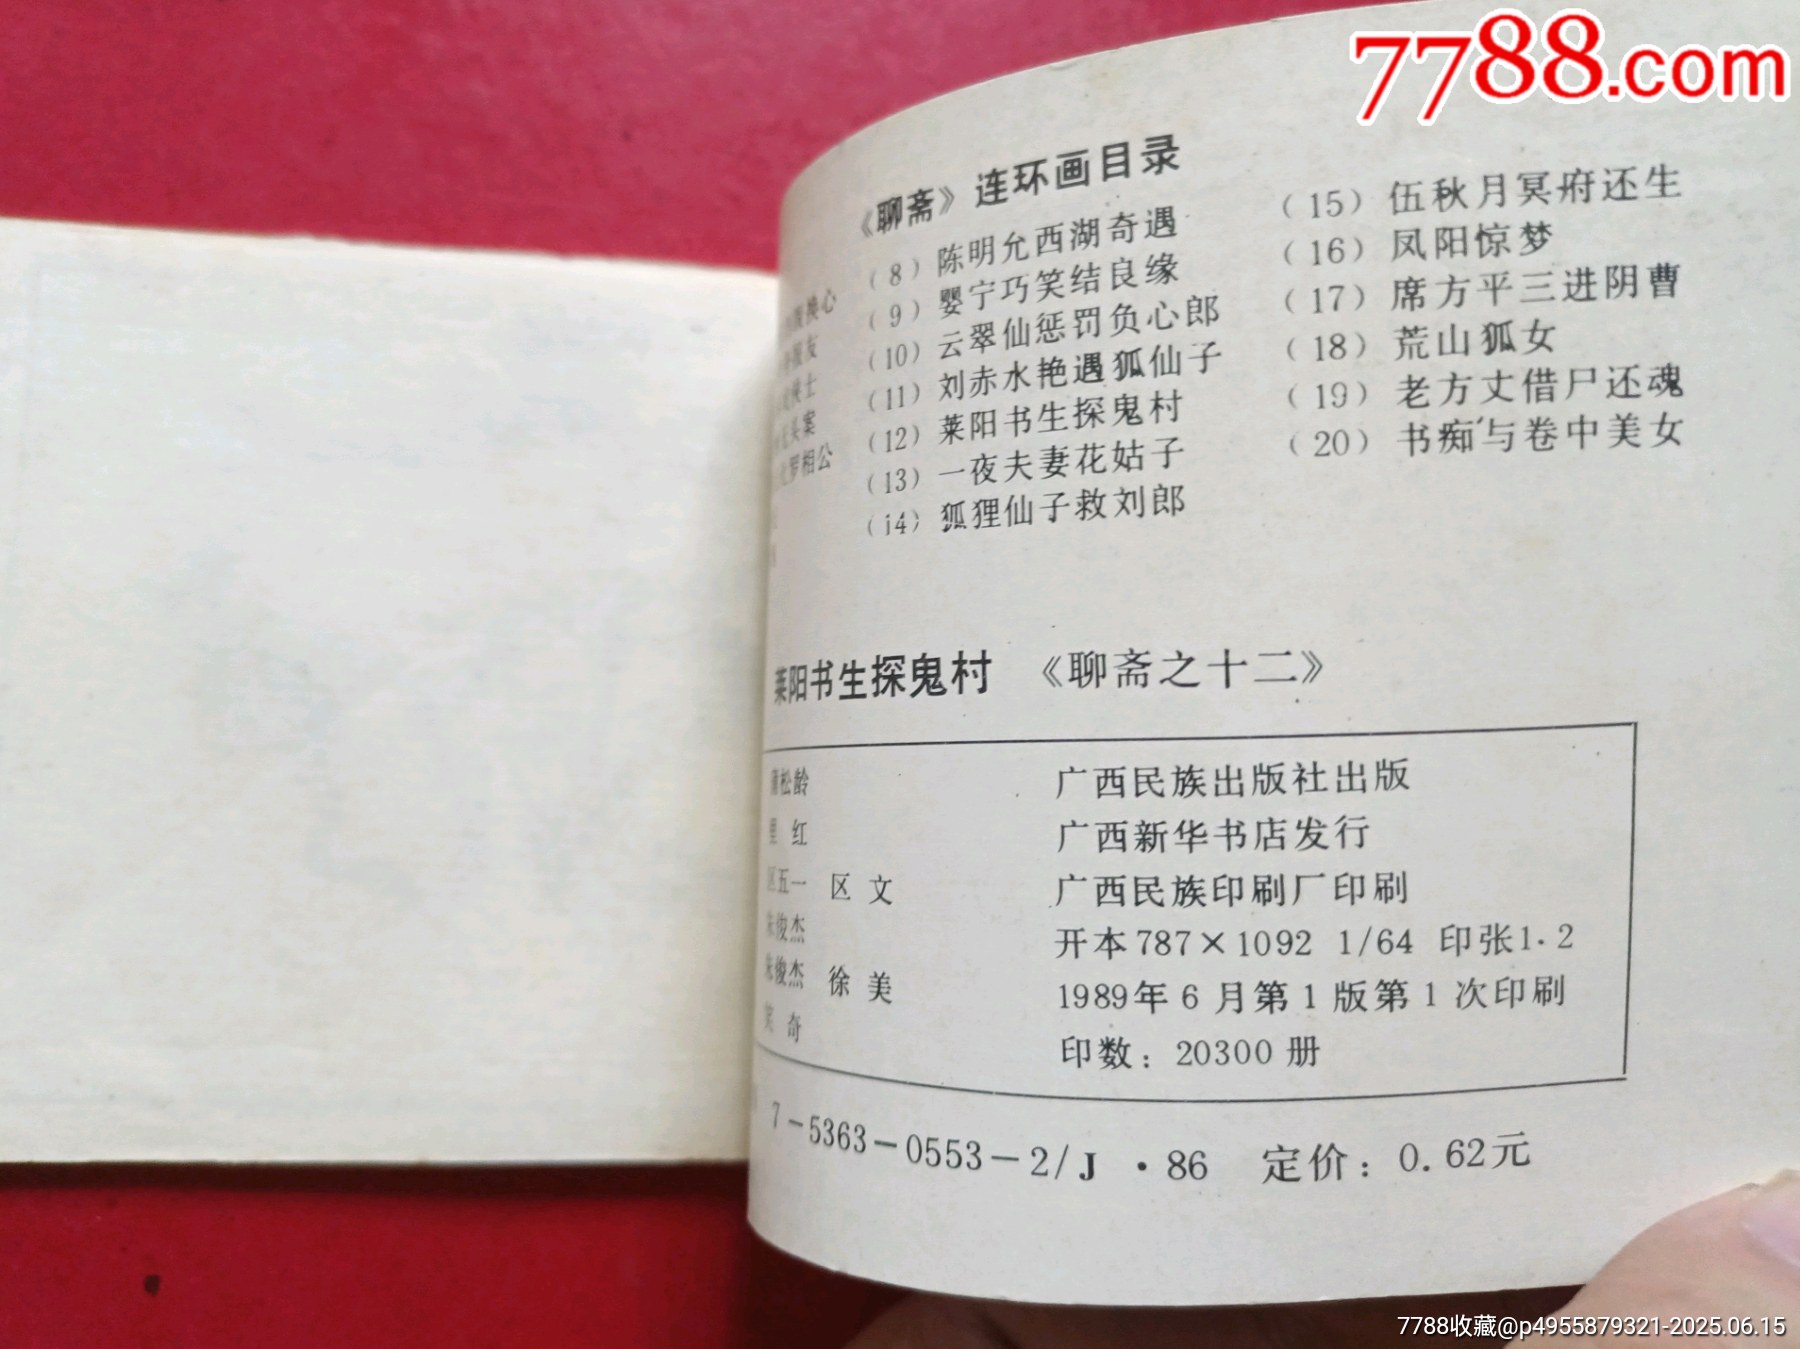 7788.com
《聊斋》连环画目录
换心
友
士
案
罗相公
（8）陈明允西湖奇遇
（9）婴宁巧笑结良缘
（10）云翠仙惩罚负心郎
（11）刘赤水艳遇狐仙子
（12）莱阳书生探鬼村
（13）一夜夫妻花姑子
（14）狐狸仙子救刘郎
（15）伍秋月冥府还生
（16）凤阳惊梦
（17）席方平三进阴曹
（18）荒山狐女
（19）老方丈借尸还魂
（20）书痴与卷中美女
莱阳书生探鬼村 《聊斋之十二》
蒲松龄
里 红
区五一 区 文
朱俊杰
朱俊杰 徐 美
奇
广西民族出版社出版
广西新华书店发行
广西民族印刷厂印刷
开本787×1092 1/64 印张1.2
1989年6月第1版第1次印刷
印数：20300册
7－5363－0553－2/J·86 定价：0.62元
7788收藏@p4955879321-2025.06.15